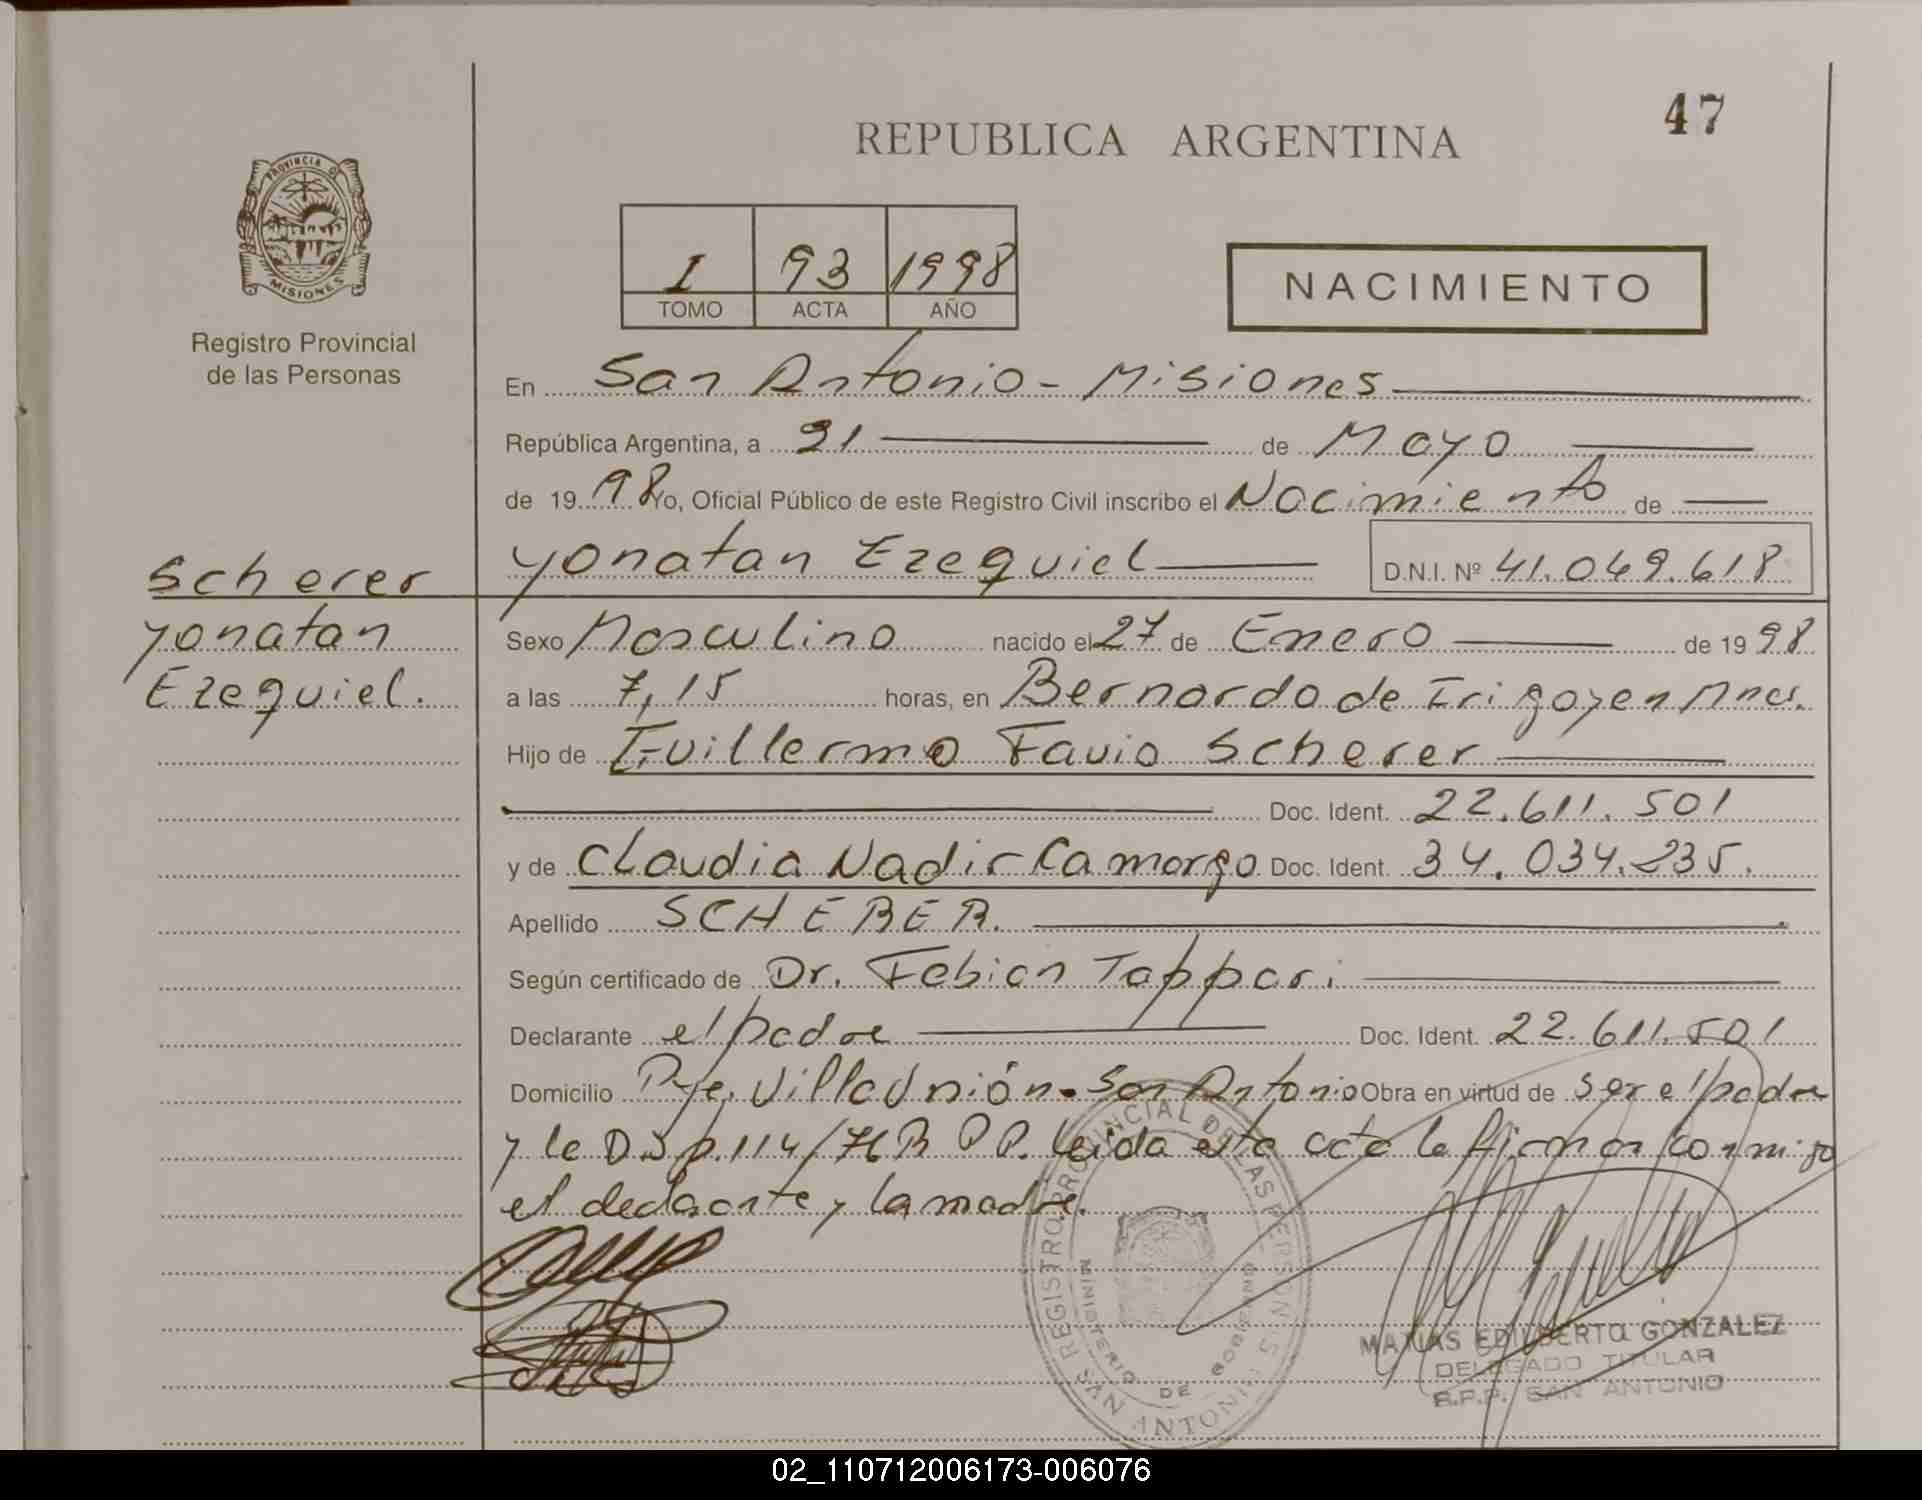 47
REPUBLICA ARGENTINA
PROVINCIA DE
MISIONES
Registro Provincial
de las Personas
I 93 1998
TOMO ACTA AÑO
NACIMIENTO
En San Antonio - Misiones
República Argentina, a 21 de Mayo
de 19 98 Yo, Oficial Público de este Registro Civil inscribo el Nacimiento de
Scherer
Yonatan
Ezequiel.
Yonatan Ezequiel D.N.I. Nº 41.049.618
Sexo Masculino nacido el 27 de Enero de 19 98
a las 7,15 horas, en Bernardo de Irigoyen Mnes.
Hijo de Guillermo Favio Scherer
Doc. Ident. 22.611.501
y de Claudia Nadir Camargo Doc. Ident. 34.034.235.
Apellido SCHERER.
Según certificado de Dr. Fabian Tappari
Declarante el padre Doc. Ident. 22.611.501
Domicilio Pje. Villa Unión - San Antonio Obra en virtud de ser el padre
y la Disp. 114/76 R.P.P. leida esta acta la firman conmigo
el declarante y la madre.
REGISTRO PROVINCIAL DE LAS PERSONAS
MINISTERIO DE GOBIERNO
SAN ANTONIO
MATIAS EDILBERTO GONZALEZ
DELEGADO TITULAR
R.P.P. SAN ANTONIO
02_110712006173-006076